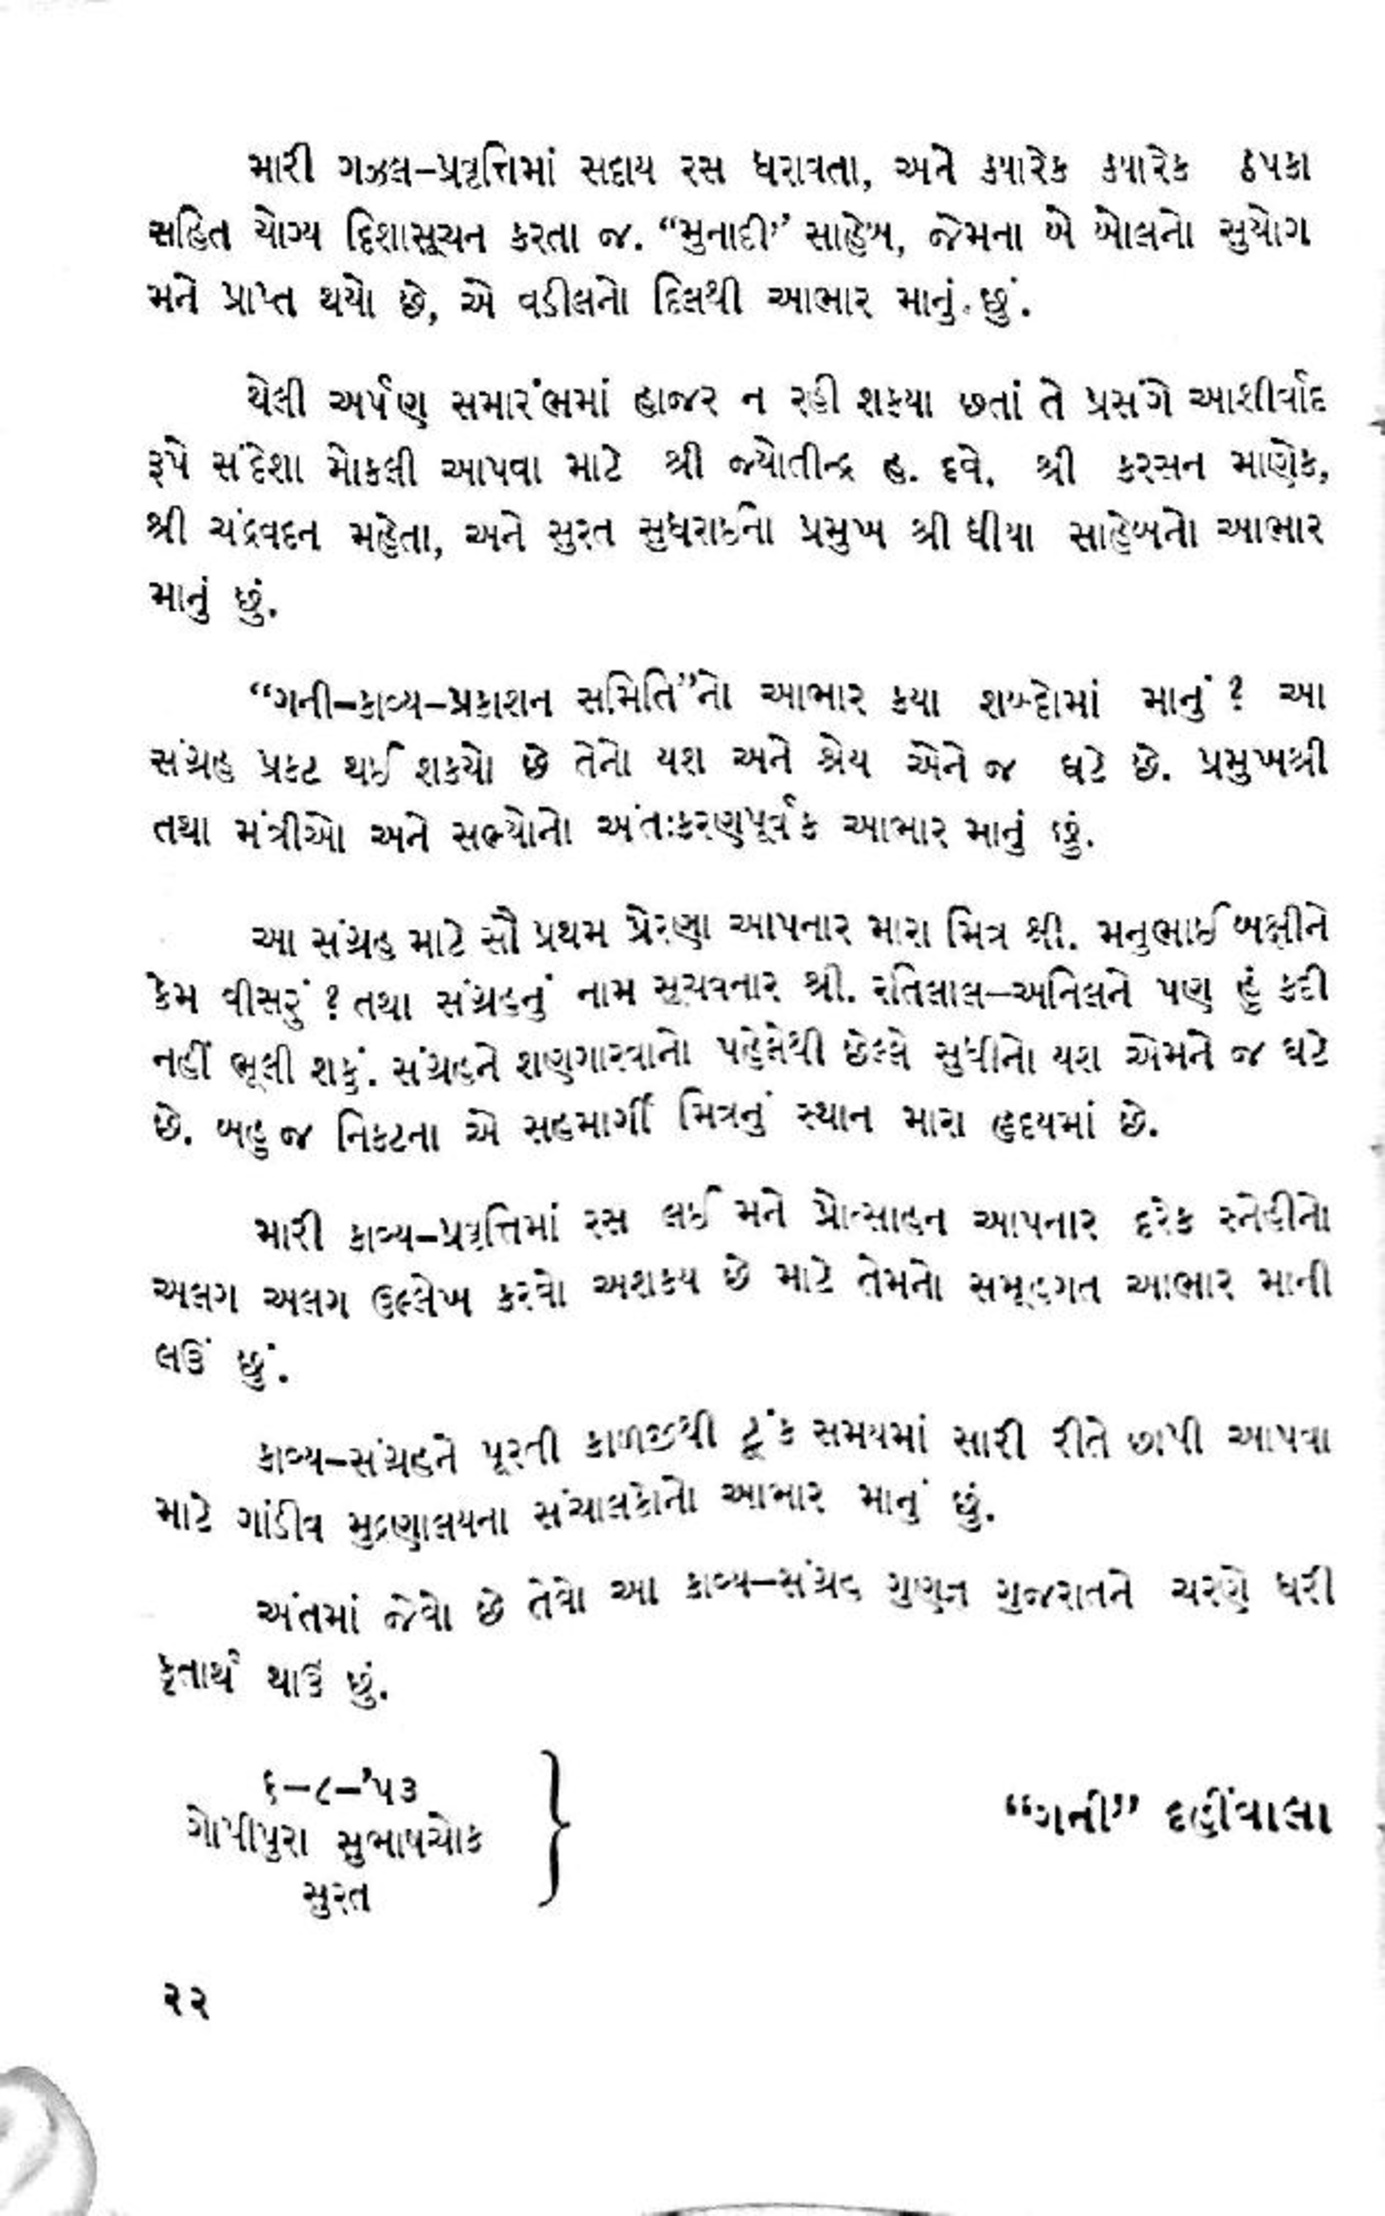 મારી ગઝલ-પ્રવૃત્તિમાં સદાય રસ ધરાવતા, અને કયારેક કયારેક ઠપકા
સહિત યોગ્ય દિશાસૂચન કરતા જ. “મુનાદી” સાહેબ, જેમના બે બોલનો સુયોગ
મને પ્રાપ્ત થયો છે, એ વડીલનો દિલથી આભાર માનું છું.
થેલી અર્પણ સમારંભમાં હાજર ન રહી શકયા છતાં તે પ્રસંગે આશીર્વાદ
રૂપે સંદેશા મોકલી આપવા માટે શ્રી જ્યોતીન્દ્ર હ. દવે, શ્રી કરસન માણેક,
શ્રી ચંદ્રવદન મહેતા, અને સુરત સુધરાઈના પ્રમુખ શ્રી ધીયા સાહેબનો આભાર
માનું છું.
“ગની-કાવ્ય-પ્રકાશન સમિતિ”નો આભાર કયા શબ્દોમાં માનું ? આ
સંગ્રહ પ્રકટ થઈ શકયો છે તેનો યશ અને શ્રેય એને જ ઘટે છે. પ્રમુખશ્રી
તથા મંત્રીઓ અને સભ્યોનો અંતઃકરણપૂર્વક આભાર માનું છું.
આ સંગ્રહ માટે સૌ પ્રથમ પ્રેરણા આપનાર મારા મિત્ર શ્રી. મનુભાઈ બક્ષીને
કેમ વીસરું ? તથા સંગ્રહનું નામ સૂચવનાર શ્રી. રતિલાલ-અનિલને પણ હું કદી
નહીં ભૂલી શકું. સંગ્રહને શણગારવાનો પહેલેથી છેલ્લે સુધીનો યશ એમને જ ઘટે
છે. બહુ જ નિકટના એ સહમાર્ગી મિત્રનું સ્થાન મારા હૃદયમાં છે.
મારી કાવ્ય-પ્રવૃત્તિમાં રસ લઈ મને પ્રોત્સાહન આપનાર દરેક સ્નેહીનો
અલગ અલગ ઉલ્લેખ કરવો અશકય છે માટે તેમનો સમૂહગત આભાર માની
લઉં છું.
કાવ્ય-સંગ્રહને પૂરતી કાળજીથી ટૂંક સમયમાં સારી રીતે છાપી આપવા
માટે ગાંડીવ મુદ્રણાલયના સંચાલકોનો આભાર માનું છું.
અંતમાં જેવો છે તેવો આ કાવ્ય-સંગ્રહ ગુણજ્ઞ ગુજરાતને ચરણે ધરી
કૃતાર્થ થાઉં છું.
૬-૮-’૫૩
ગોપીપુરા સુભાષચોક
સુરત
“ગની” દહીંવાલા
૨૨